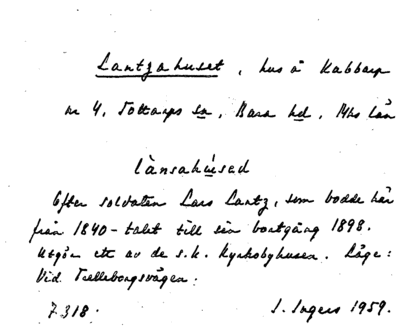 Lantzahuset, hus å Kabbarp
nr 4, Tottarps sn, Bara hd, Mhs län
lànsahúsad
Efter soldaten Lars Lantz, som bodde här
från 1840-talet till sin bortgång 1898.
Utgör ett av de s.k. Kyrkobyhusen. Läge:
Vid Trelleborgsvägen.
7318. I. Ingers 1959.